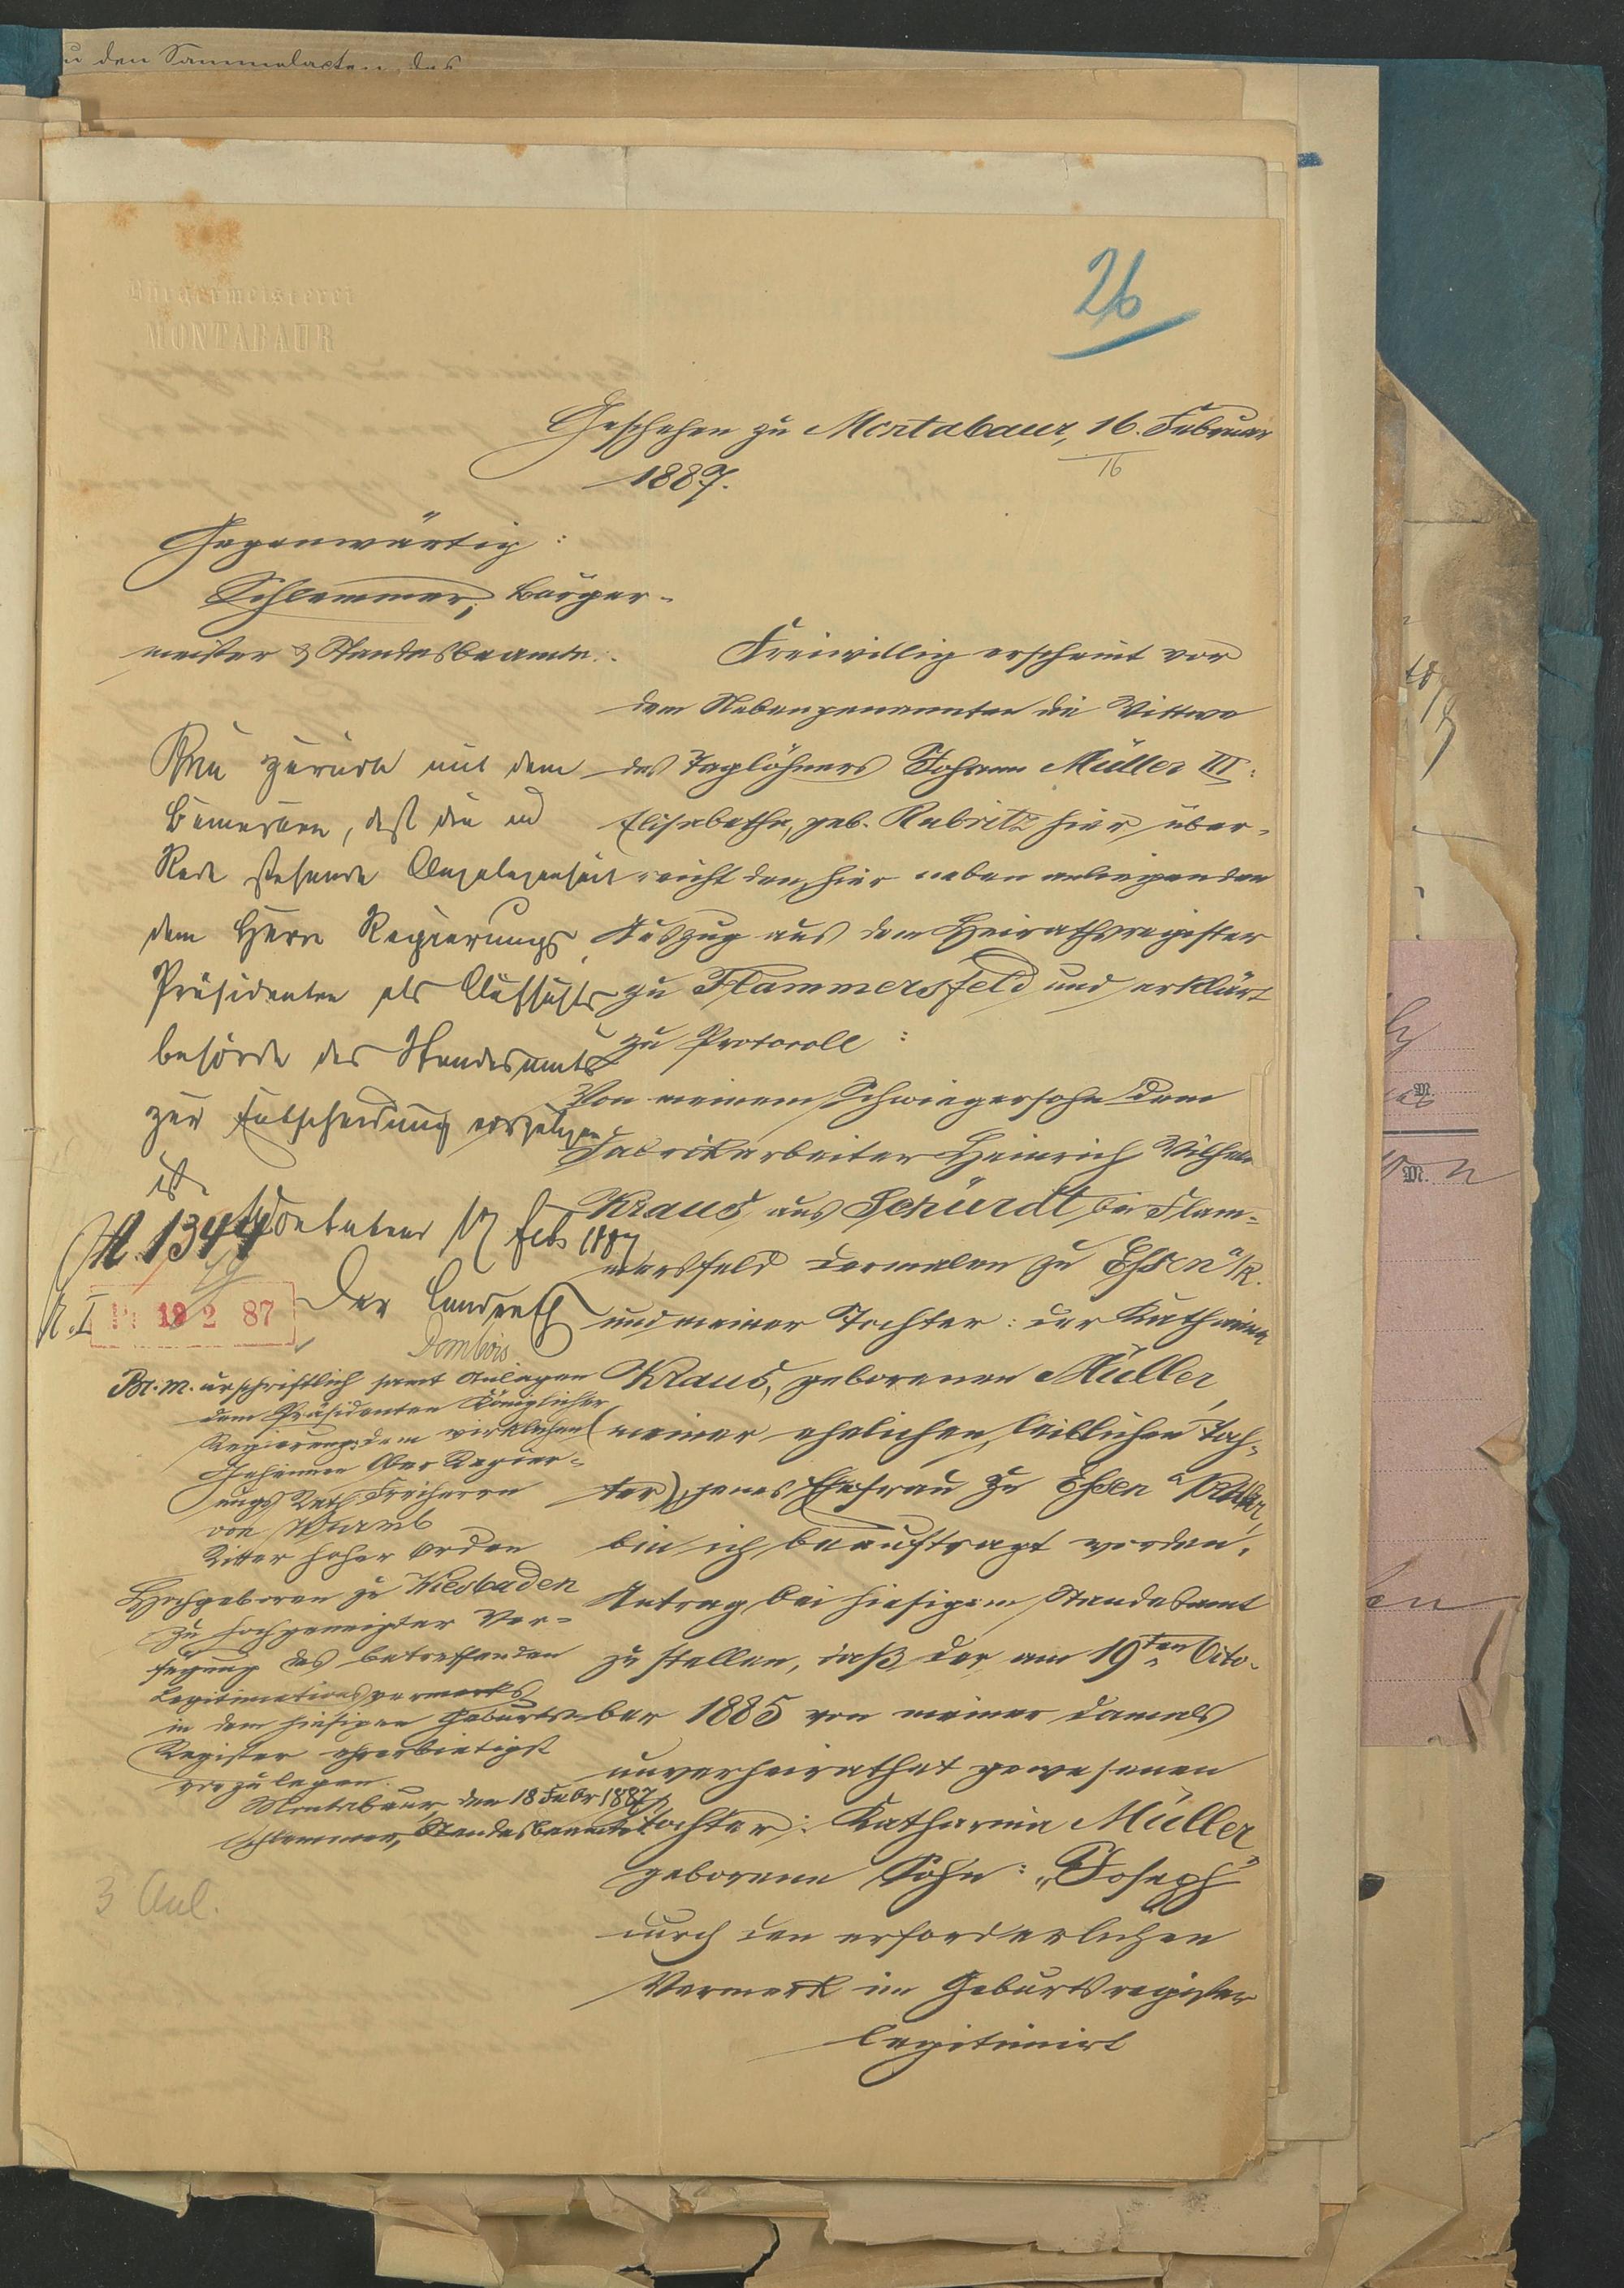 u den Sammelacten des
Bürgermeisterei
MONTABAUR
26
Geschehen zu Montabaur, 16. Februar
16
1887.
Gegenwärtig:
Schlemmer, Bürger-
meister & Standesbeamte.
Freiwillig erscheint vor
dem Nebengenannten die Wittwe
des Taglöhners Johann Müller III:
Elisabetha, geb. Rabritz hier, über-
reicht den hier neben anliegenden
Auszug aus dem Heirathsregister
zu Flammersfeld und erklärt
zu Protocoll:
Von meinem Schwiegersohn dem
Fabrikarbeiter Heinrich Wilhelm
Kraus, aus Schürdt bei Flam-
mersfeld dermalen zu Essen a/R.
und meiner Tochter: der Katharina
Kraus, geborenen Müller,
(meiner ehelichen, leiblichen Toch-
ter) jenes Ehefrau zu Essen a/Ruhr,
bin ich beauftragt worden,
Antrag bei hiesigem Standesamt
zu stellen, daß der am 19ten Octo-
ber 1885 von meiner damals
unverheirathet gewesenen
Tochter: Katharina Müller
geborene Sohn: „Joseph"
durch den erforderlichen
Vermerk im Geburtsregister
legitimirt
zurück mit dem
Bemerken, daß die in
Rede stehende Angelegenheit
dem Herrn Regierungs
Präsidenten als Aufsichts
behörde des Standesamts
zur Entscheidung vorzulegen
ist.
Montabaur 17 Feb 1887
Der Landrath
Dombois
A. 1344
Pr. I
19 2 87
Br. m. urschriftlich samt Anlagen
dem Präsidenten Königlicher
Regierung, dem wirklichen
Geheimen Ober Regier-
ungs Rath Freiherrn
von Wurmb
Ritter hoher Orden
Hochgeboren zu Wiesbaden
zu hochgeneigter Ver-
fügung des betreffenden
Legitimationsvermerks
in dem hiesigen Geburts-
Register ehrerbietigst
vorzulegen.
Montabaur, den 18 Febr 1887
Schlemmer, Standesbeamte
3 Anl.